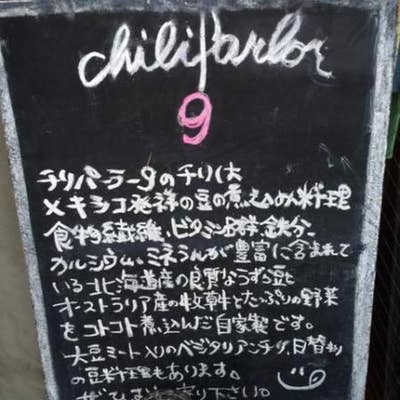 chili parlor
9
チリパーラー9のチリは
メキシコ発祥の豆の煮込み料理
食物繊維、ビタミンB群、鉄分、
カルシウム、ミネラルが豊富に含まれて
いる北海道産の良質なうずら豆と
オーストラリア産の牧草牛とたっぷりの野菜
をコトコト煮込んだ自家製です。
大豆ミート入りのベジタリアンチリ、日替わり
の豆料理もあります。
ぜひお立ち寄り下さい。